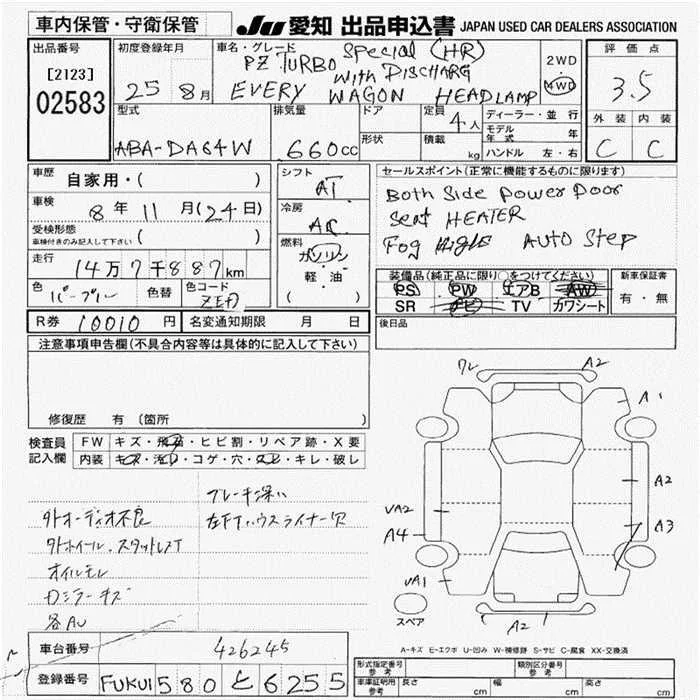 車内保管・守衛保管
JU 愛知 出品申込書 JAPAN USED CAR DEALERS ASSOCIATION
出品番号
[2123]
02583
初度登録年月
25 8月
車名・グレード
PZ TURBO Special (HR)
with DISCHARG
EVERY WAGON HEADLAMP
2WD
4WD
評価点
3.5
外装 内装
C C
型式
ABA-DA64W
排気量
660cc
ドア
形状
定員
4人
積載
kg
ディーラー・並行
モデル年式 年
ハンドル 左・右
車歴
自家用・( )
車検
8年 11月(24日)
受検形態
車検付きのみ記入して下さい ( )
走行
14万7千887km
色
パープリー
色替
色コード
ZEA
シフト
AT
冷房
AC
燃料
ガソリン
軽・油
( )
セールスポイント(正常に機能するものに限ります)
Both Side Power Door
Seat HEATER
Fog AUTO STEP
装備品(純正品に限り○をつけてください)
PS PW エアB AW
SR ナビ TV カワシート
新車保証書
有・無
後日品
R券 10010円
名変通知期限 月 日
注意事項申告欄(不具合内容等は具体的に記入して下さい)
修復歴 有(箇所 )
検査員記入欄
FW キズ・飛石・ヒビ割・リペア跡・X要
内装 キズ・汚れ・コゲ・穴・スレ・キレ・破レ
ブレーキ深い
外オーディオ不良
左下Tハウスライナー欠
外ホイール、スタットレスT
オイルモレ
ロミラーキズ
各AU
ワレ A2
A1
A2
A3
VA2
A4
VA1
A2
スペア
A-キズ E-エクボ U-凹み W-補修跡 S-サビ C-腐食 XX-交換済
車台番号 426245
登録番号 FUKUI 580 と 6255
形式指定番号 参考
類別区分番号 参考
車庫証明用 参考 長さ cm 幅 cm 高さ cm